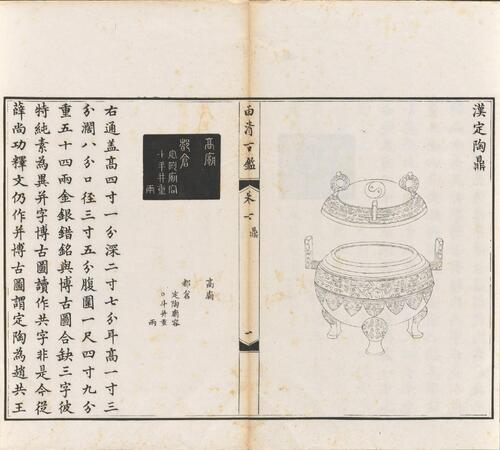 漢定陶鼎
西清古鑑
鼎
一
高廟
都倉
高廟
都倉
定陶廟容
斗并重
兩
右通盖高四寸一分深二寸七分耳高一寸三
分濶八分口徑三寸五分腹圍一尺四寸九分
重五十四兩金銀錯銘與博古圖合缺三字彼
特純素為異并字博古圖讀作共字非是今從
薛尚功釋文仍作并博古圖謂定陶為趙共王